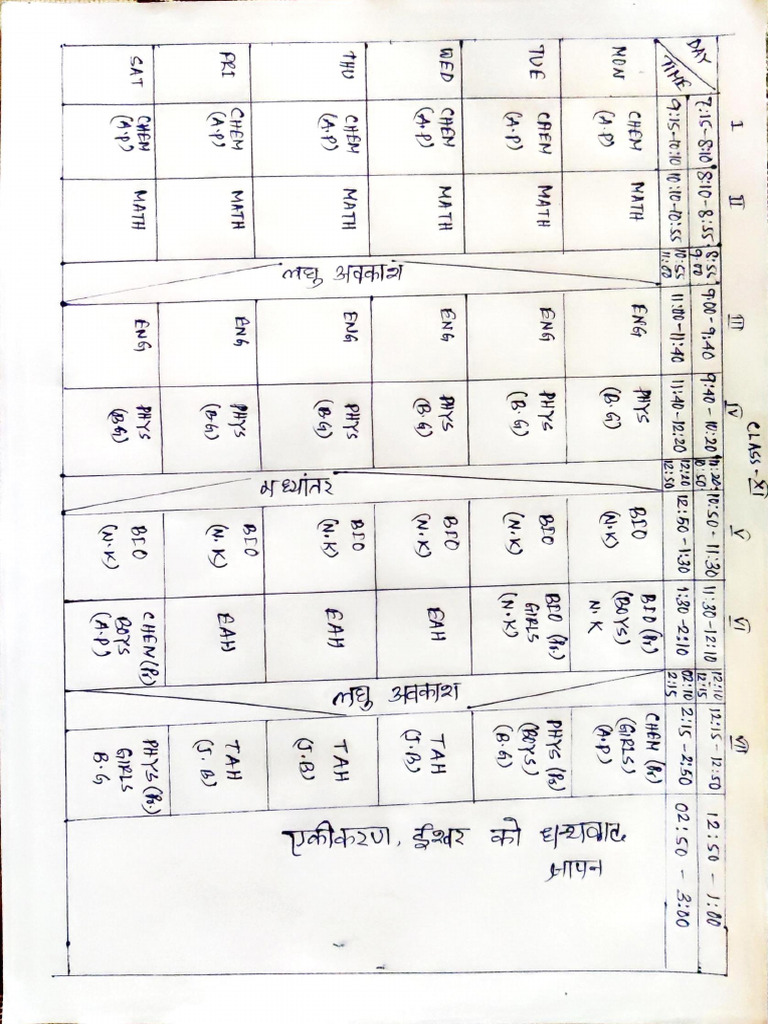 CLASS-XI
I II III IV V VI VII
DAY 7:15-8:10 8:10-8:55 8:55 9:00 9:00-9:40 9:40-10:20 10:20 10:50 10:50-11:30 11:30-12:10 12:10 12:15 12:15-12:50 12:50-1:00
TIME 9:15-10:10 10:10-10:55 10:55 11:00 11:00-11:40 11:40-12:20 12:20 12:50 12:50-1:30 1:30-2:10 02:10 2:15 2:15-2:50 02:50-3:00
MON CHEM (A.P) MATH ENG PHYS (B.G) BIO (N.K) BIO (Pr.) (BOYS) N.K CHEM (Pr) (GIRLS) (A.P)
TUE CHEM (A.P) MATH ENG PHYS (B.G) BIO (N.K) BIO (Pr.) GIRLS (N.K) PHYS (Pr) (BOYS) (B.G)
WED CHEM (A.P) MATH ENG PHYS (B.G) BIO (N.K) EAH TAH (J.B)
THU CHEM (A.P) MATH ENG PHYS (B.G) BIO (N.K) EAH TAH (J.B)
FRI CHEM (A.P) MATH ENG PHYS (B.G) BIO (N.K) EAH TAH (J.B)
SAT CHEM (A.P) MATH ENG PHYS (B.G) BIO (N.K) CHEM (Pr) BOYS (A.P) PHYS (Pr.) GIRLS B.G
लघु अवकाश
मध्यांतर
लघु अवकाश
एकीकरण, ईश्वर को धन्यवाद
ज्ञापन